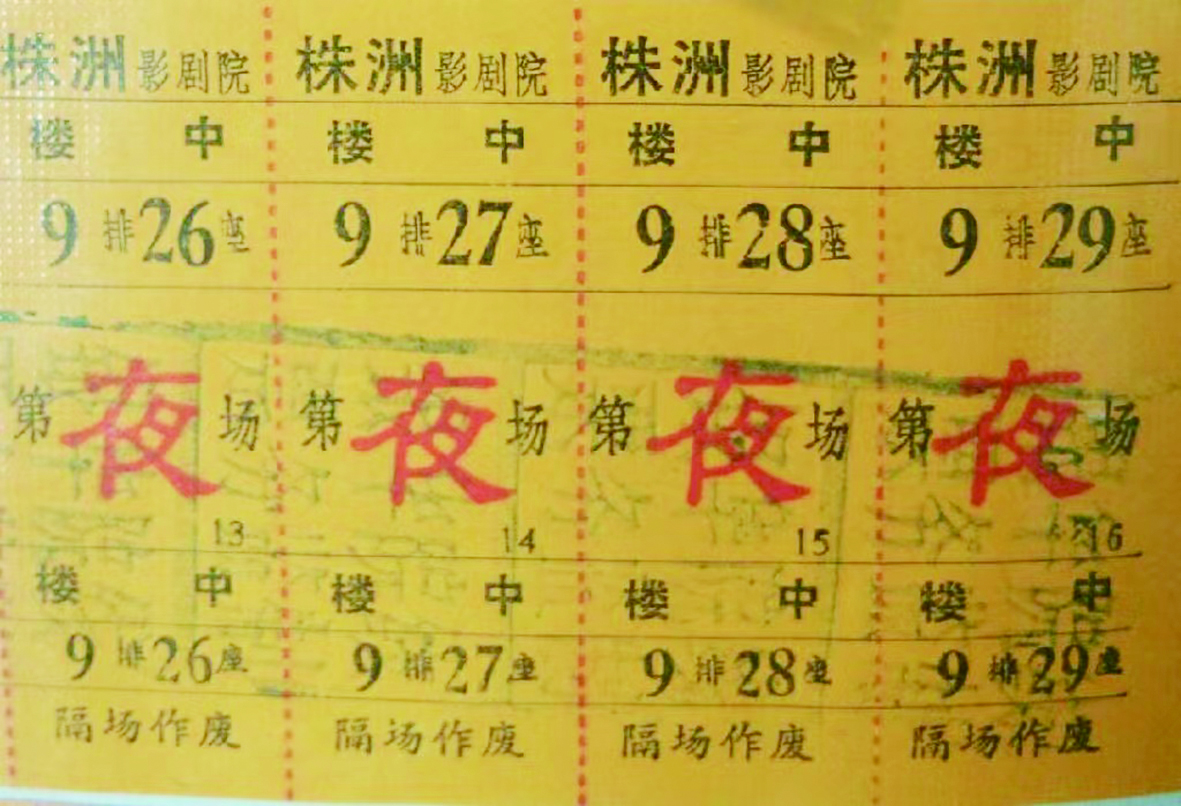 株洲影剧院 株洲影剧院 株洲影剧院 株洲影剧院
楼 中 楼 中 楼 中 楼 中
9排26座 9排27座 9排28座 9排29座
第夜场 第夜场 第夜场 第夜场
13 14 15 16
楼 中 楼 中 楼 中 楼 中
9排26座 9排27座 9排28座 9排29座
隔场作废 隔场作废 隔场作废 隔场作废